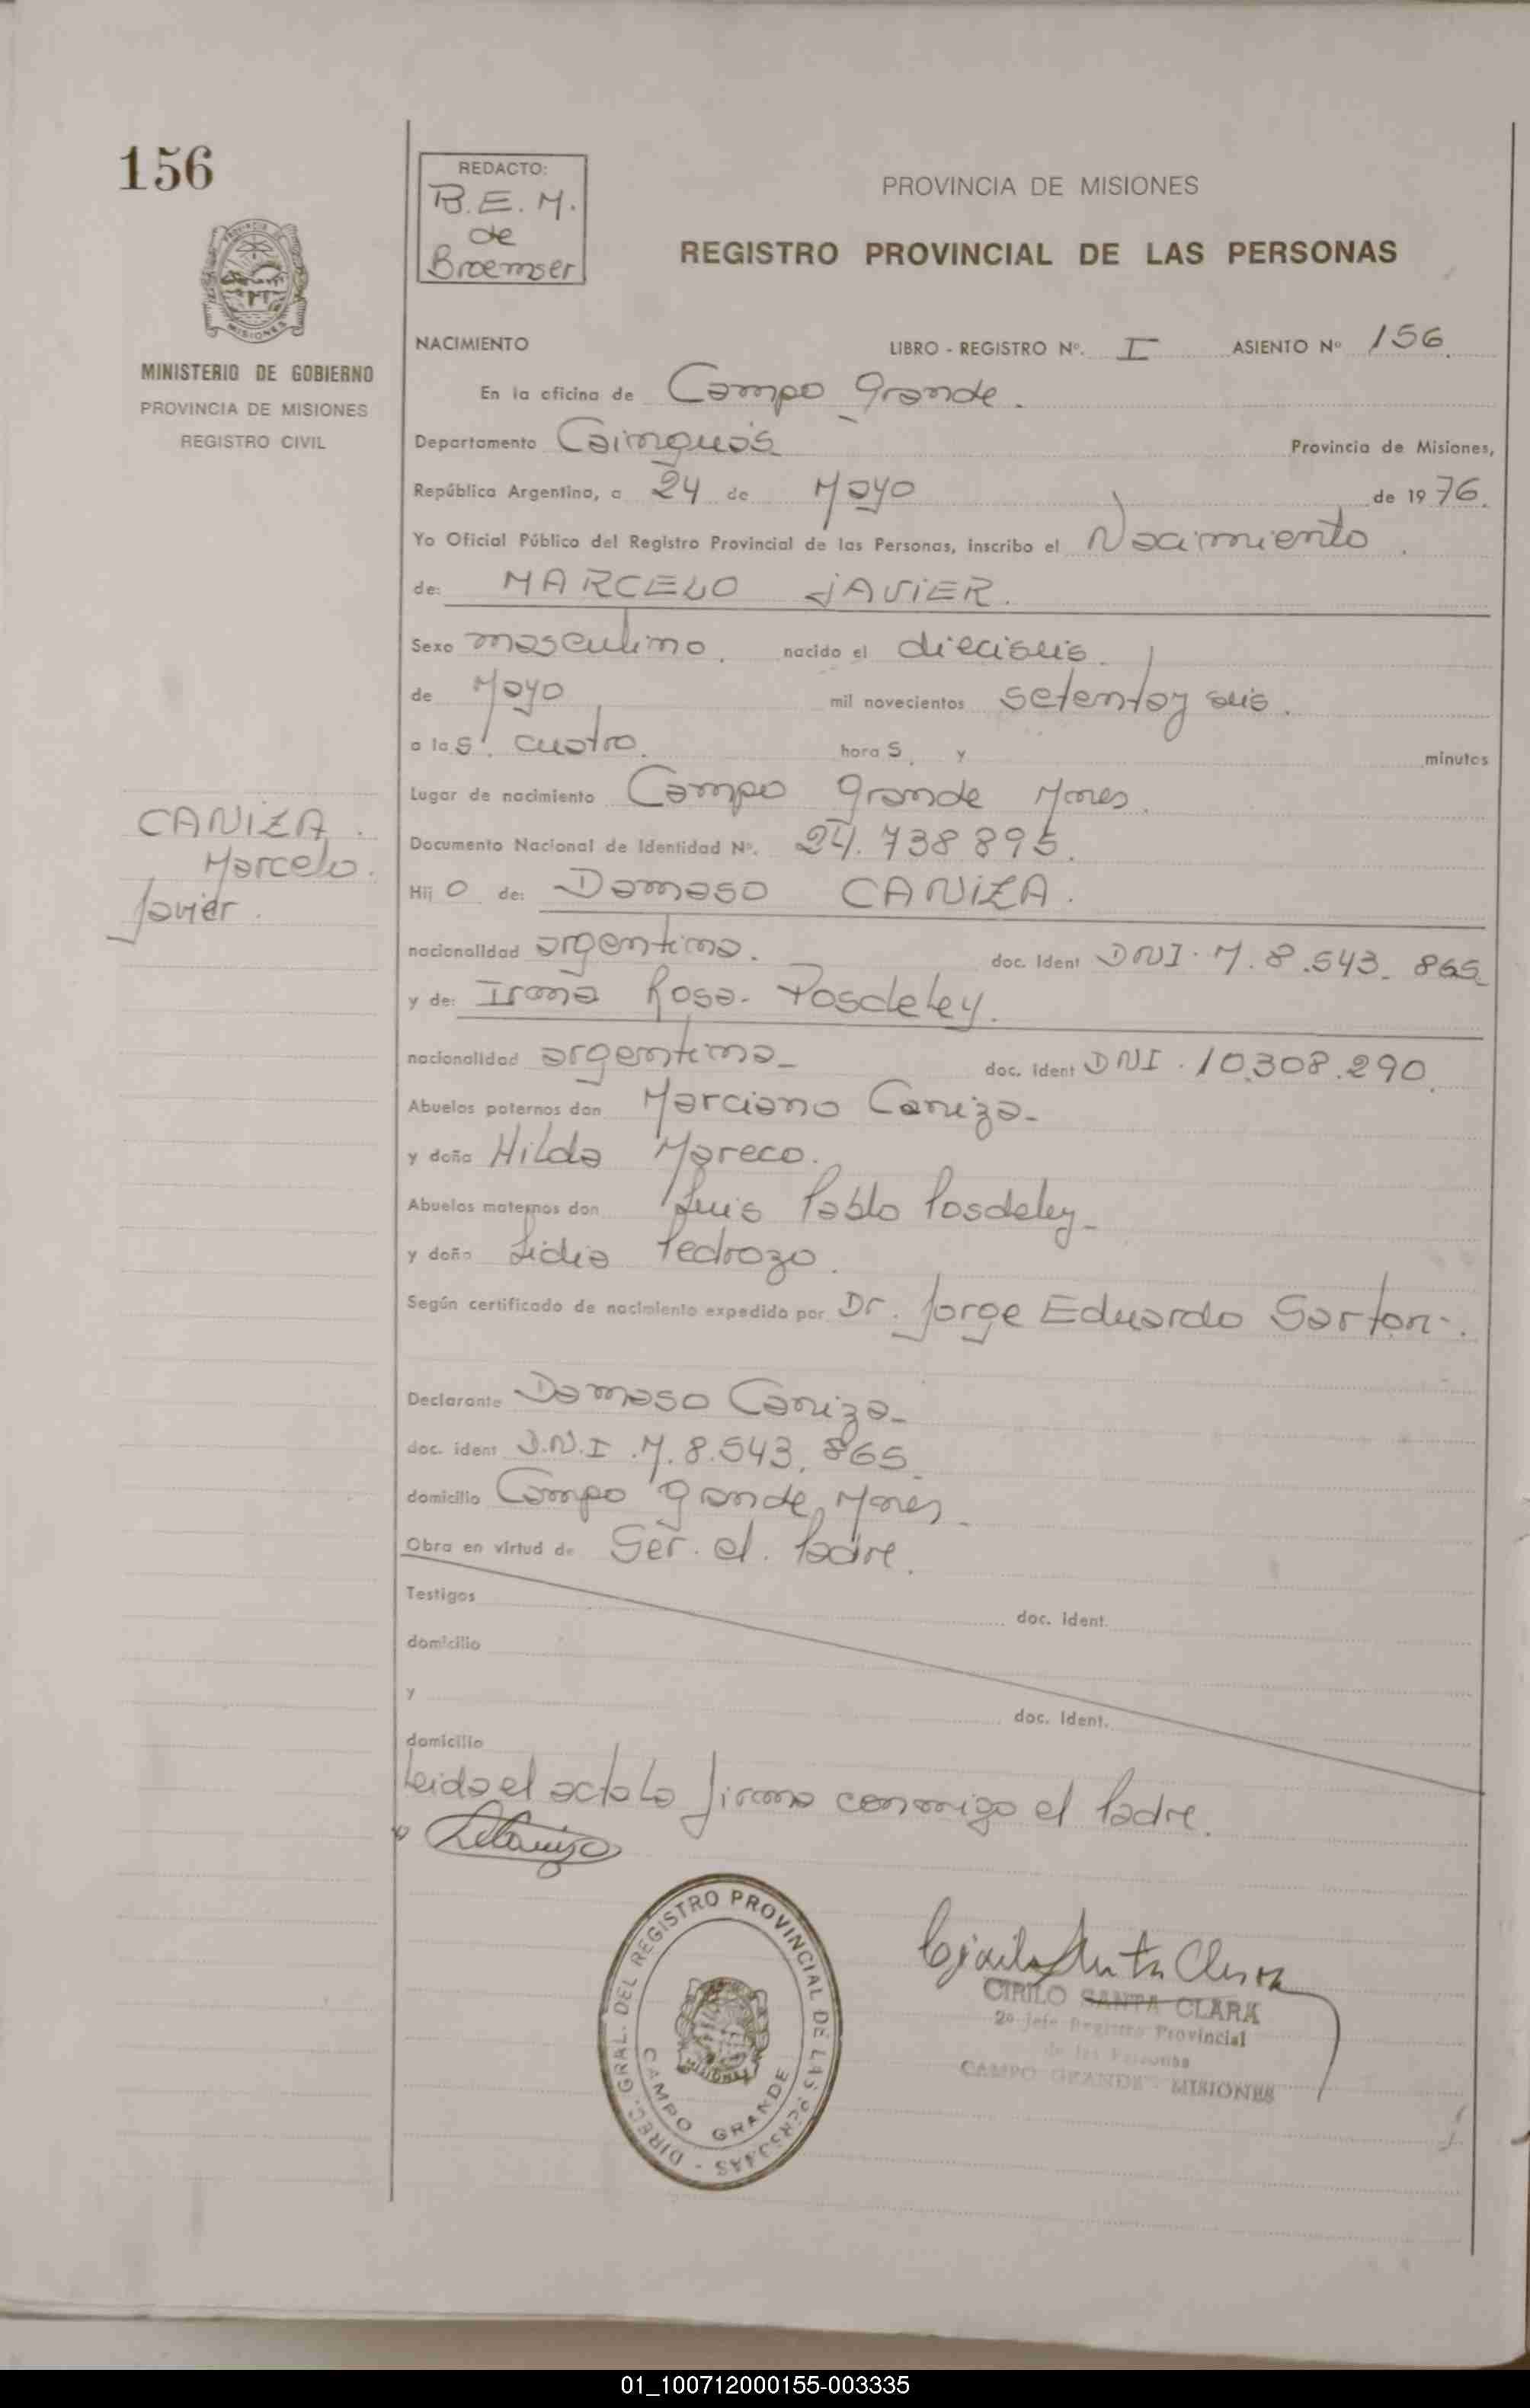 156
MINISTERIO DE GOBIERNO
PROVINCIA DE MISIONES
REGISTRO CIVIL
CANIZA.
Marcelo.
Javier.
REDACTO:
B.E.M.
de
Broemser
PROVINCIA DE MISIONES
REGISTRO PROVINCIAL DE LAS PERSONAS
NACIMIENTO LIBRO - REGISTRO Nº. I ASIENTO Nº 156.
En la oficina de Campo Grande.
Departamento Cainguás Provincia de Misiones,
República Argentina, a 24 de Mayo de 1976.
Yo Oficial Público del Registro Provincial de las Personas, inscribo el Nacimiento.
de: MARCELO JAVIER.
Sexo masculino. nacido el dieciseis.
de Mayo mil novecientos setentay seis.
a las cuatro. horas, y minutos
Lugar de nacimiento Campo Grande Mnes.
Documento Nacional de Identidad Nº. 24.738.895.
Hijo de: Damaso CANIZA.
nacionalidad argentina. doc. Ident DNI. M. 8.543.865.
y de: Irma Rosa Posdeley.
nacionalidad argentina- doc. Ident DNI. 10.308.290.
Abuelos paternos don Marciano Caniza-
y doña Hilda Mareco.
Abuelos maternos don Luis Pablo Posdeley-
y doña Lidia Pedrozo.
Según certificado de nacimiento expedido por Dr. Jorge Eduardo Sartori.
Declarante Damaso Caniza-
doc. ident D.N.I. M. 8.543.865.
domicilio Campo Grande, Mnes-
Obra en virtud de Ser el Padre.
Testigos doc. Ident.
domicilio
y doc. Ident.
domicilio
Leida el acta la firma conmigo el Padre.
DIREC. GRAL. DEL REGISTRO PROVINCIAL DE LAS PERSONAS -
CAMPO GRANDE
MISIONES
CIRILO SANTA CLARA
2º Jefe Registro Provincial
de las Personas
CAMPO GRANDE - MISIONES
01_100712000155-003335